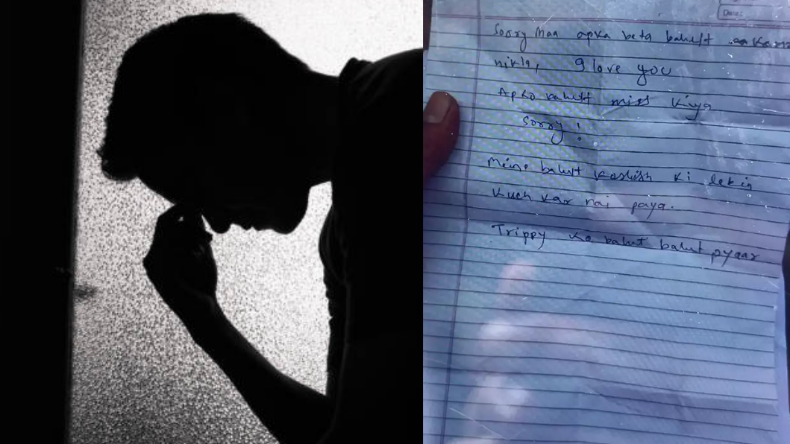 Date:
Sorry Maa apka beta bahut
nikla, I love you
Apko bahut miss kiya
Sorry!
Meine bahut koshish ki lekin
kuch kar nai paya.
Trippy ko bahut bahut pyaar